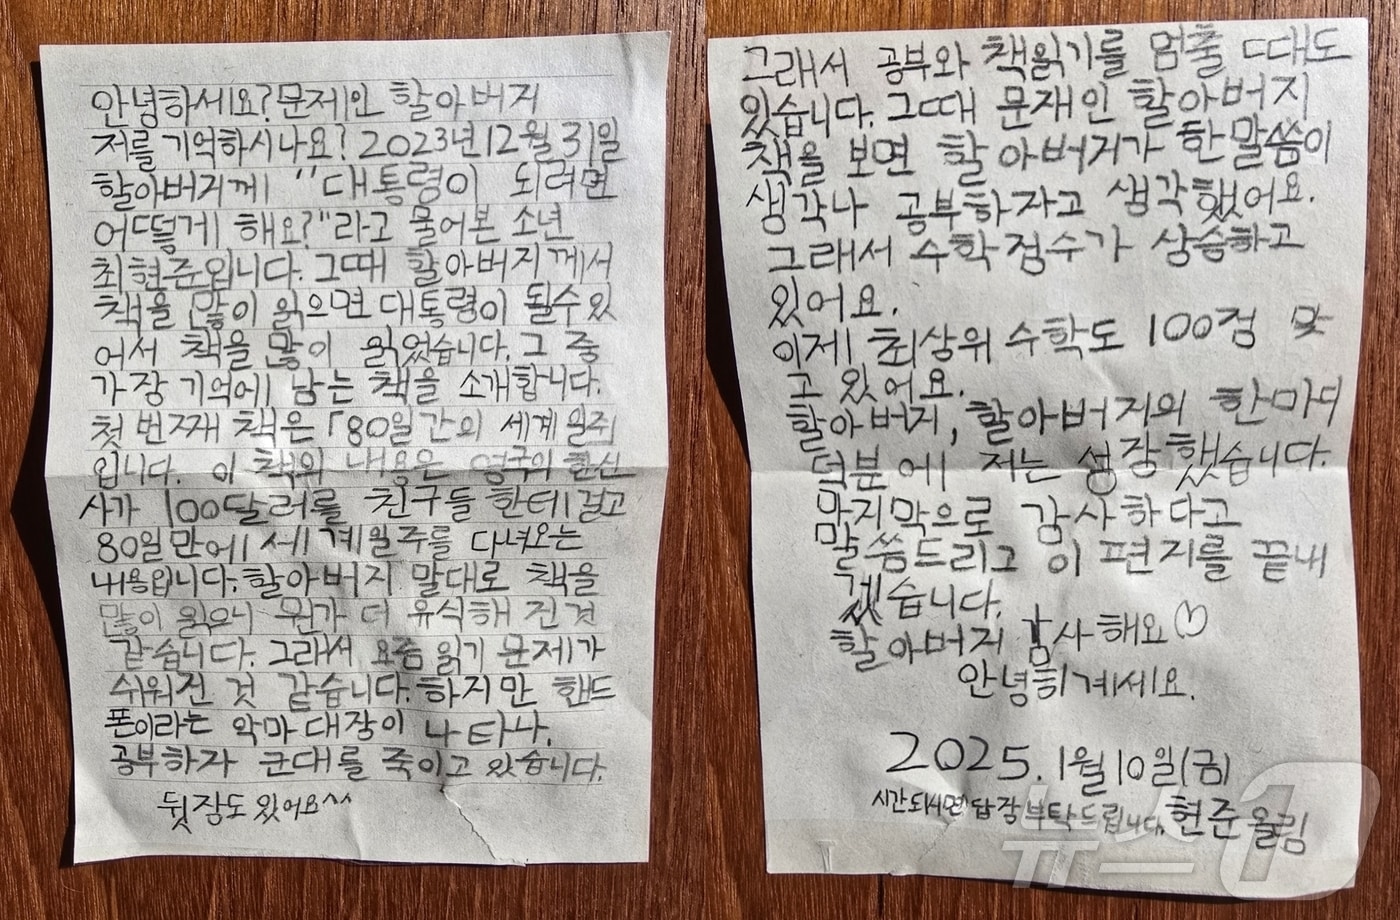 안녕하세요? 문제인 할아버지
저를 기억하시나요? 2023년 12월 31일
할아버지께 "대통령이 되려면
어떻게 해요?"라고 물어본 소년
최현준입니다. 그때 할아버지께서
책을 많이 읽으면 대통령이 될수 있
어서 책을 많이 읽었습니다. 그 중
가장 기억에 남는 책을 소개합니다.
첫 번째 책은 「80일간의 세계 일주
입니다. 이 책의 내용은 영국의 한신
사가 100달러를 친구들 한테 걸고
80일만에 세계일주를 다녀오는
내용입니다. 할아버지 말대로 책을
많이 읽으니 뭔가 더 유식해 진 것
같습니다. 그래서 요즘 읽기 문제가
쉬워진 것 같습니다. 하지만 핸드
폰이라는 악마 대장이 나타나,
공부하자 군대를 죽이고 있습니다.
뒷장도 있어요^^
그래서 공부와 책읽기를 멈출 때도
있습니다. 그때 문재인 할아버지
책을 보면 할아버지가 한말씀이
생각나 공부하자고 생각했어요.
그래서 수학점수가 상승하고
있어요.
이제 최상위 수학도 100점 맞
고 있어요.
할아버지, 할아버지의 한마디
덕분에 저는 성장했습니다.
맘지막으로 감사하다고
말씀드리고 이 편지를 끝내
겠습니다.
할아버지 감사해요♡
안녕히계세요.
2025. 1월 10일(금)
시간되시면 답장 부탁드립니다. 현준 올림
뉴스1